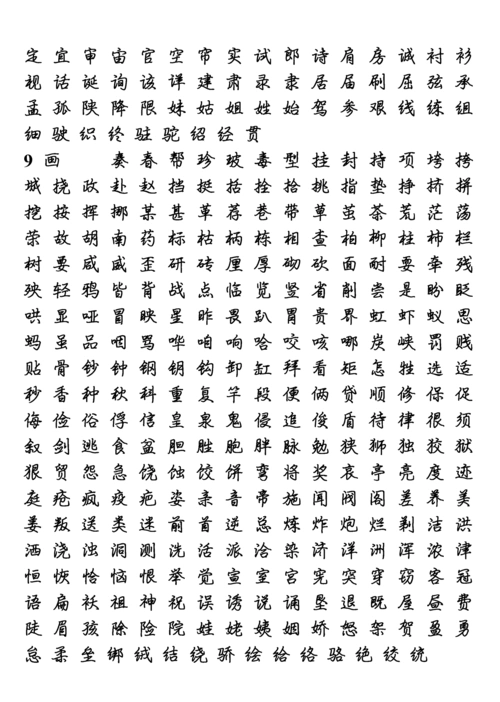 定 宜 审 宙 官 空 帘 实 试 郎 诗 肩 房 诚 衬 衫
视 话 诞 询 该 详 建 肃 录 隶 居 届 刷 屈 弦 承
孟 孤 陕 降 限 妹 姑 姐 姓 始 驾 参 艰 线 练 组
细 驶 织 终 驻 驼 绍 经 贯
9 画 奏 春 帮 珍 玻 毒 型 挂 封 持 项 垮 挎
城 挠 政 赴 赵 挡 挺 括 拴 拾 挑 指 垫 挣 挤 拼
挖 按 挥 挪 某 甚 革 荐 巷 带 草 茧 茶 荒 茫 荡
荣 故 胡 南 药 标 枯 柄 栋 相 查 柏 柳 柱 柿 栏
树 要 咸 威 歪 研 砖 厘 厚 砌 砍 面 耐 耍 牵 残
殃 轻 鸦 皆 背 战 点 临 览 竖 省 削 尝 是 盼 眨
哄 显 哑 冒 映 星 昨 畏 趴 胃 贵 界 虹 虾 蚁 思
蚂 虽 品 咽 骂 哗 咱 响 哈 咬 咳 哪 炭 峡 罚 贱
贴 骨 钞 钟 钢 钥 钩 卸 缸 拜 看 矩 怎 牲 选 适
秒 香 种 秋 科 重 复 竿 段 便 俩 贷 顺 修 保 促
侮 俭 俗 俘 信 皇 泉 鬼 侵 追 俊 盾 待 律 很 须
叙 剑 逃 食 盆 胆 胜 胞 胖 脉 勉 狭 狮 独 狡 狱
狠 贸 怨 急 饶 蚀 饺 饼 弯 将 奖 哀 亭 亮 度 迹
庭 疮 疯 疫 疤 姿 亲 音 帝 施 闻 阀 阁 差 养 美
姜 叛 送 类 迷 前 首 逆 总 炼 炸 炮 烂 剃 洁 洪
洒 浇 浊 洞 测 洗 活 派 洽 染 济 洋 洲 浑 浓 津
恒 恢 恰 恼 恨 举 觉 宣 室 宫 宪 突 穿 窃 客 冠
语 扁 袄 祖 神 祝 误 诱 说 诵 垦 退 既 屋 昼 费
陡 眉 孩 除 险 院 娃 姥 姨 姻 娇 怒 架 贺 盈 勇
怠 柔 垒 绑 绒 结 绕 骄 绘 给 络 骆 绝 绞 统